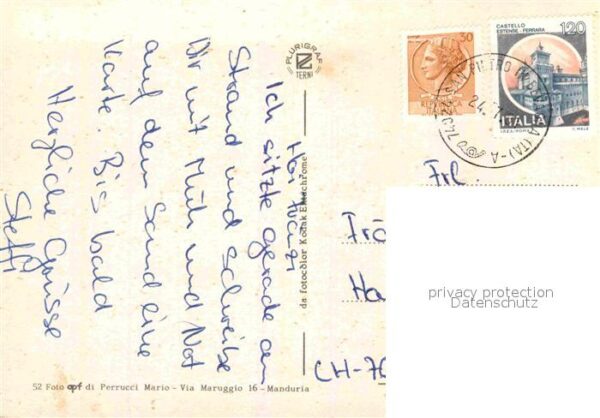 Hoi Fränzi
Ich sitze gerade am
Strand und schreibe
Dir mit Müh und Not
auf dem Sand eine
Karte. Bis bald
Herzliche Grüsse
Steffi
PLURIGRAF
TERNI
da fotocolor Kodak Ektachrome
52 Foto opf di Perrucci Mario - Via Maruggio 16 - Manduria
30
REPUBBLICA
ITALIANA
CASTELLO
ESTENSE - FERRARA
120
ITALIA
74020 SAN PIETRO IN (TA) - A
24.7
Frl.
Frä
Ha
CH-70
privacy protection
Datenschutz